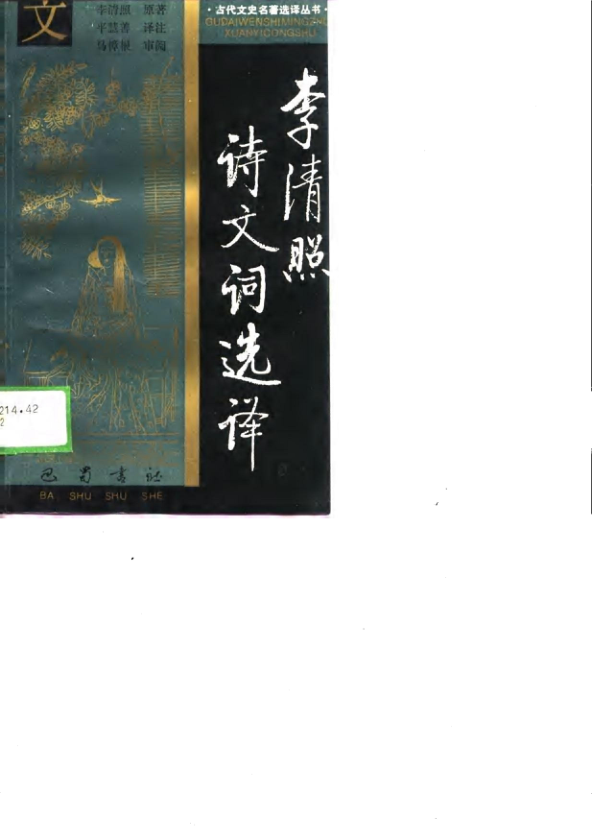 文
李清照 原著
平慧善 译注
马樟根 审阅
·古代文史名著选译丛书·
GUDAIWENSHIMINGZHU
XUANYICONGSHU
李清照
诗文词选译
214.42
2
巴蜀书社
BA SHU SHU SHE